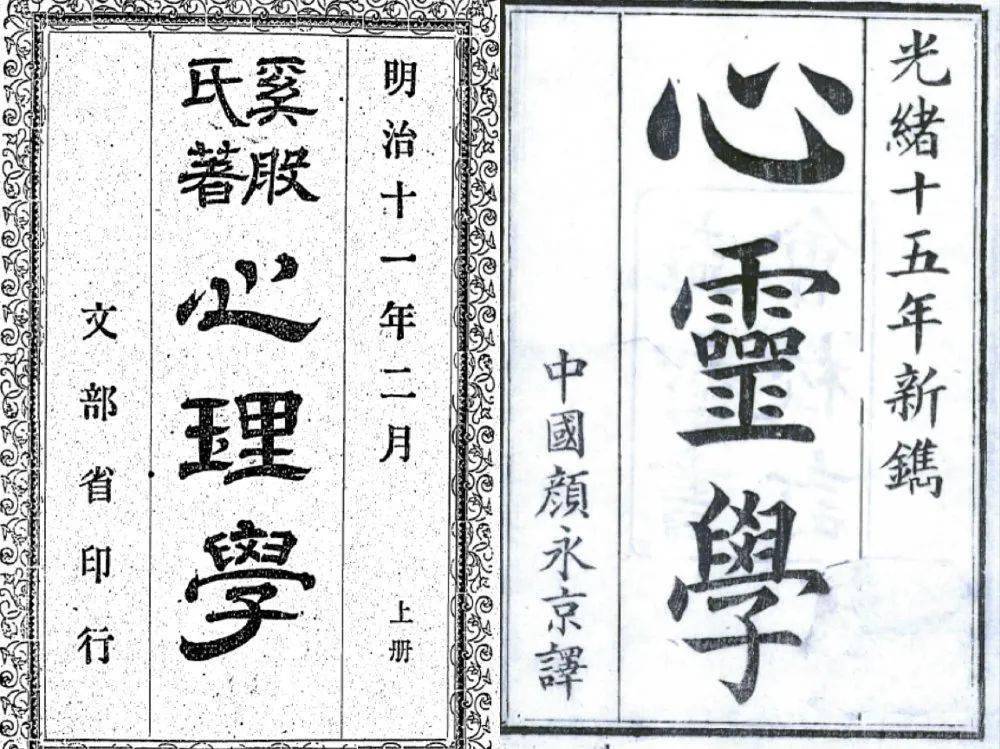 明治十一年二月
上册
奚般
氏著
心理學
文部省印行
光緒十五年新鐫
心靈學
中國顏永京譯